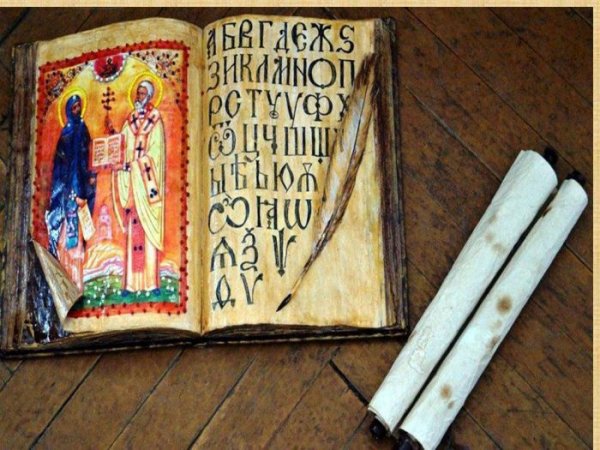 АБВГДЕЖЅ
ЗИКЛМНОП
РСТУУФХ
ѼЦЧШЩ
ЫѢЪЮѦ
ѼꙖѠ
ѦѮѰ
ѲѴ